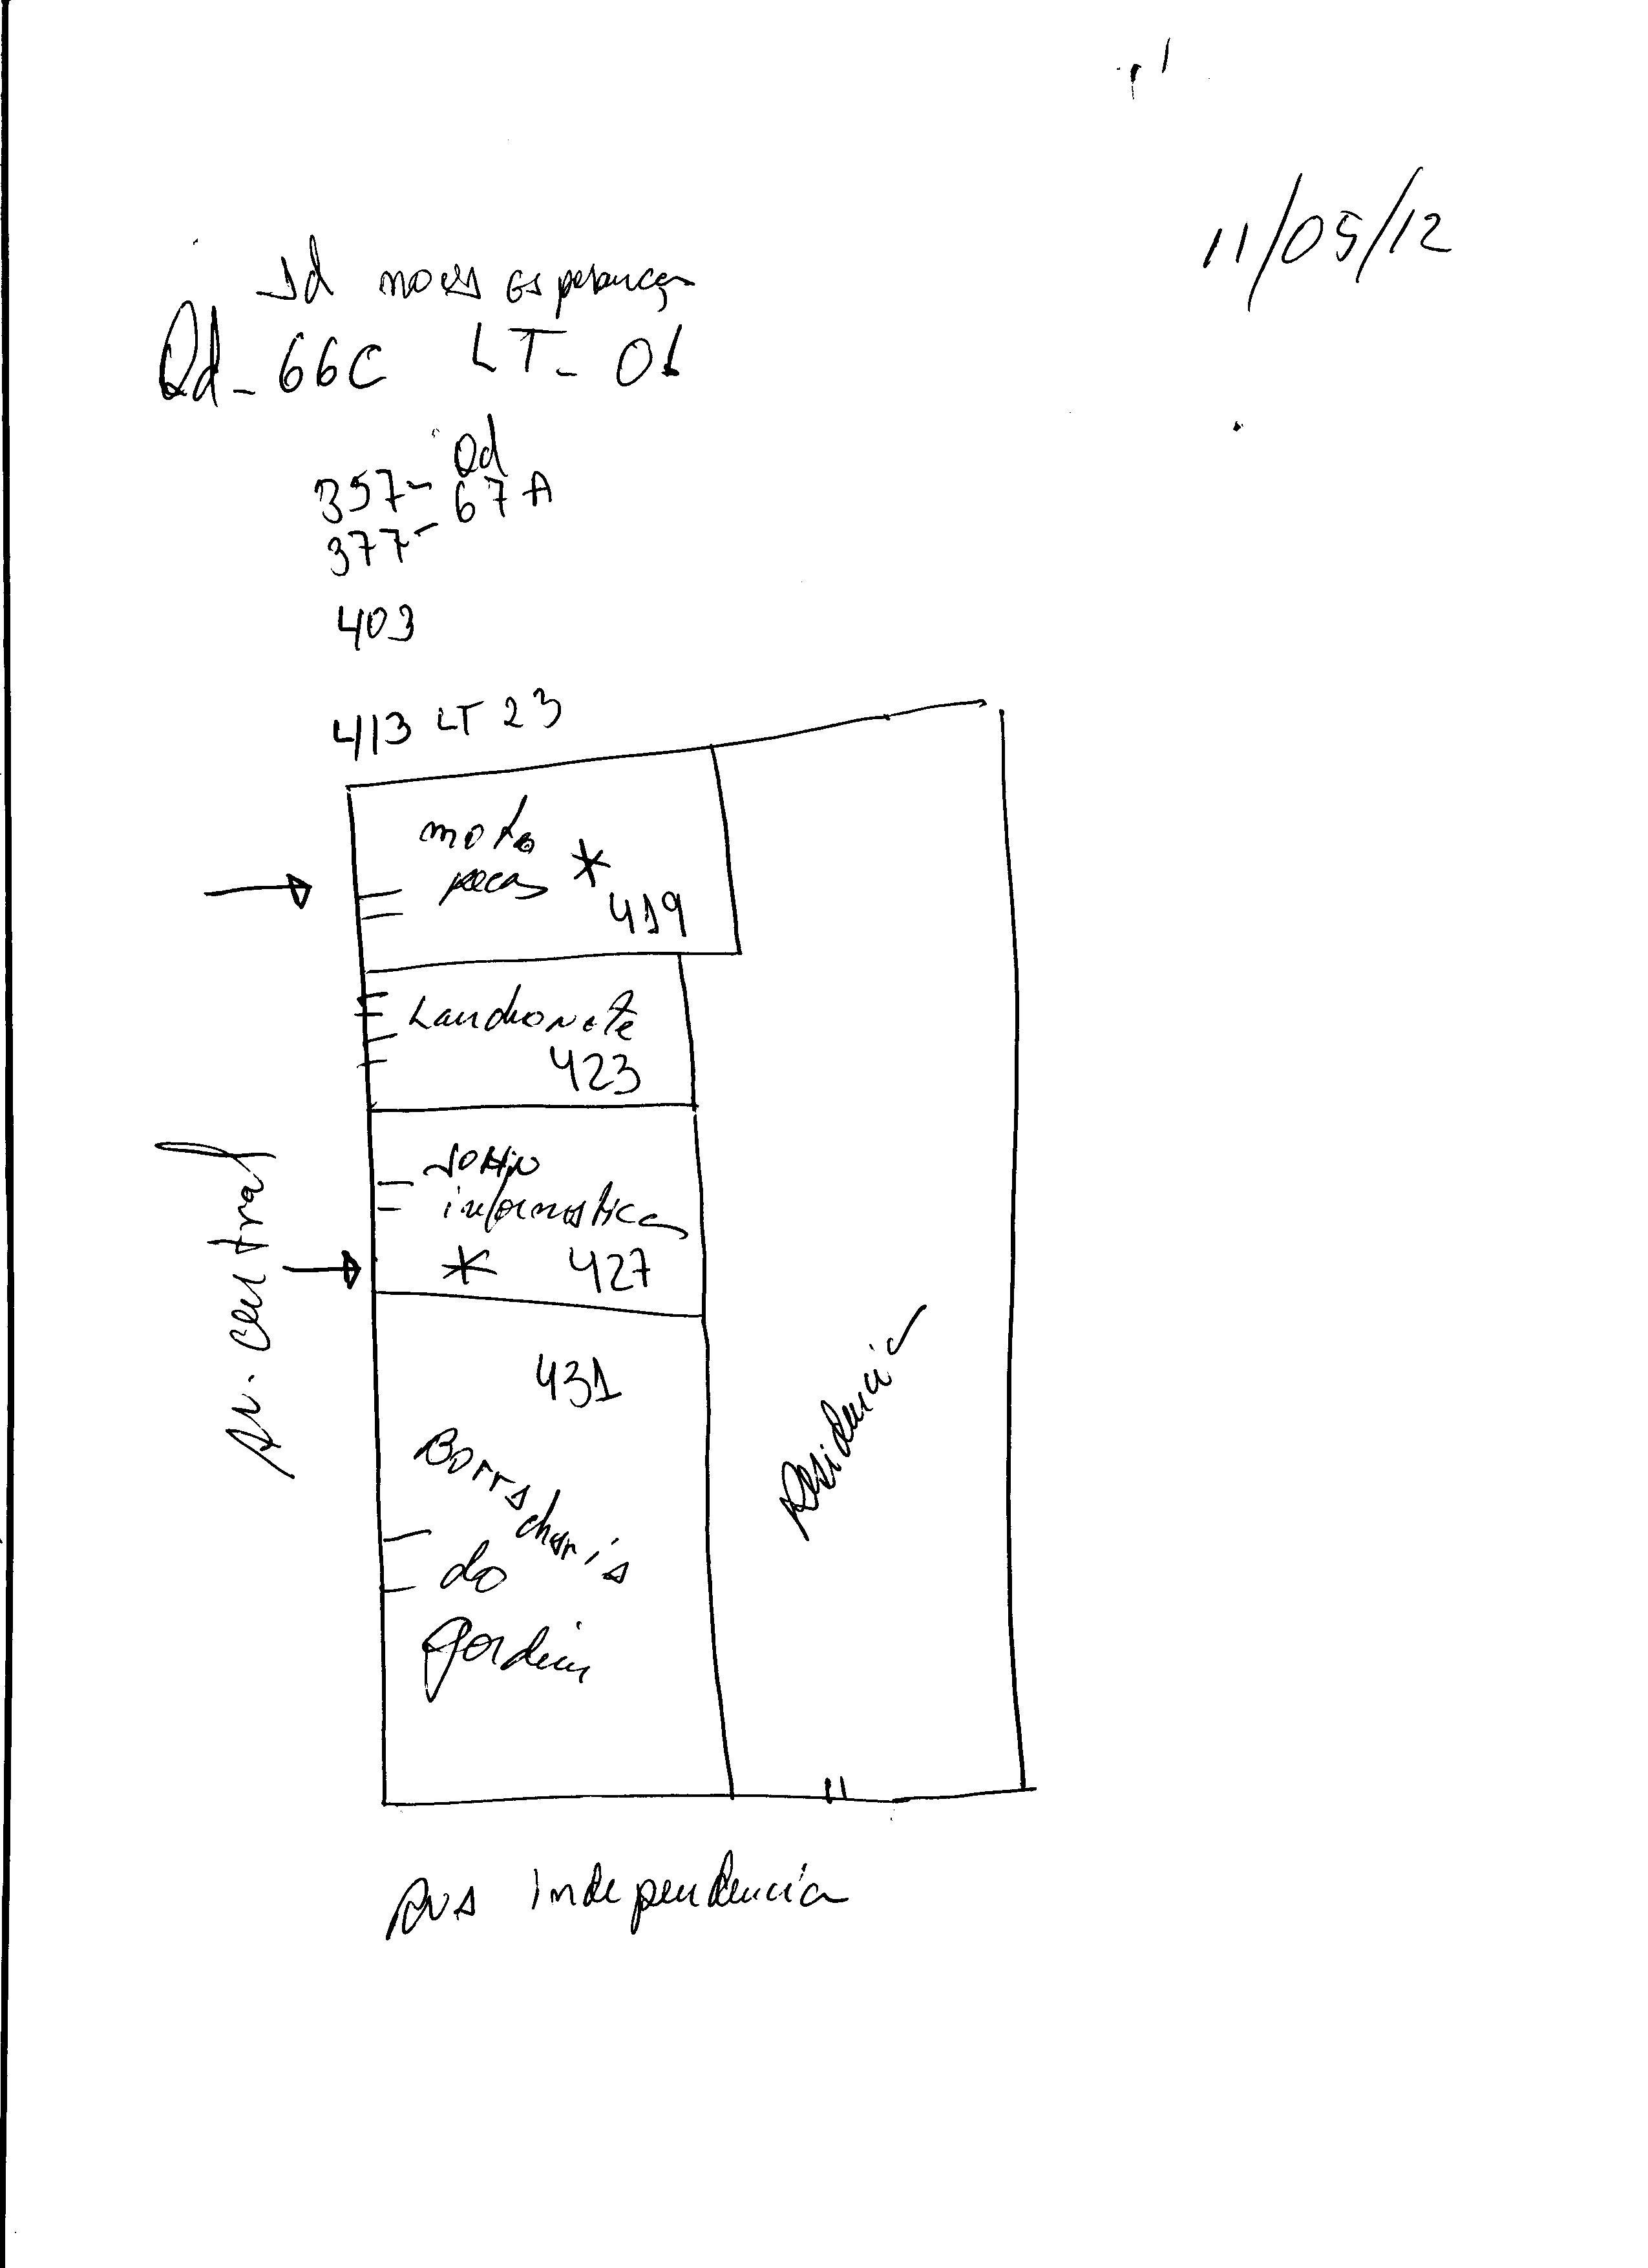 11/05/12
Jd nova esperança
Qd - 66C LT - 01
Qd
357 - 67A
377 -
403
413 LT 23
moto
peças *
419
Lanchonete
423
informatica
* 427
Av. central
431
Borracharia
do
Jardim
Residencia
Rua Independencia